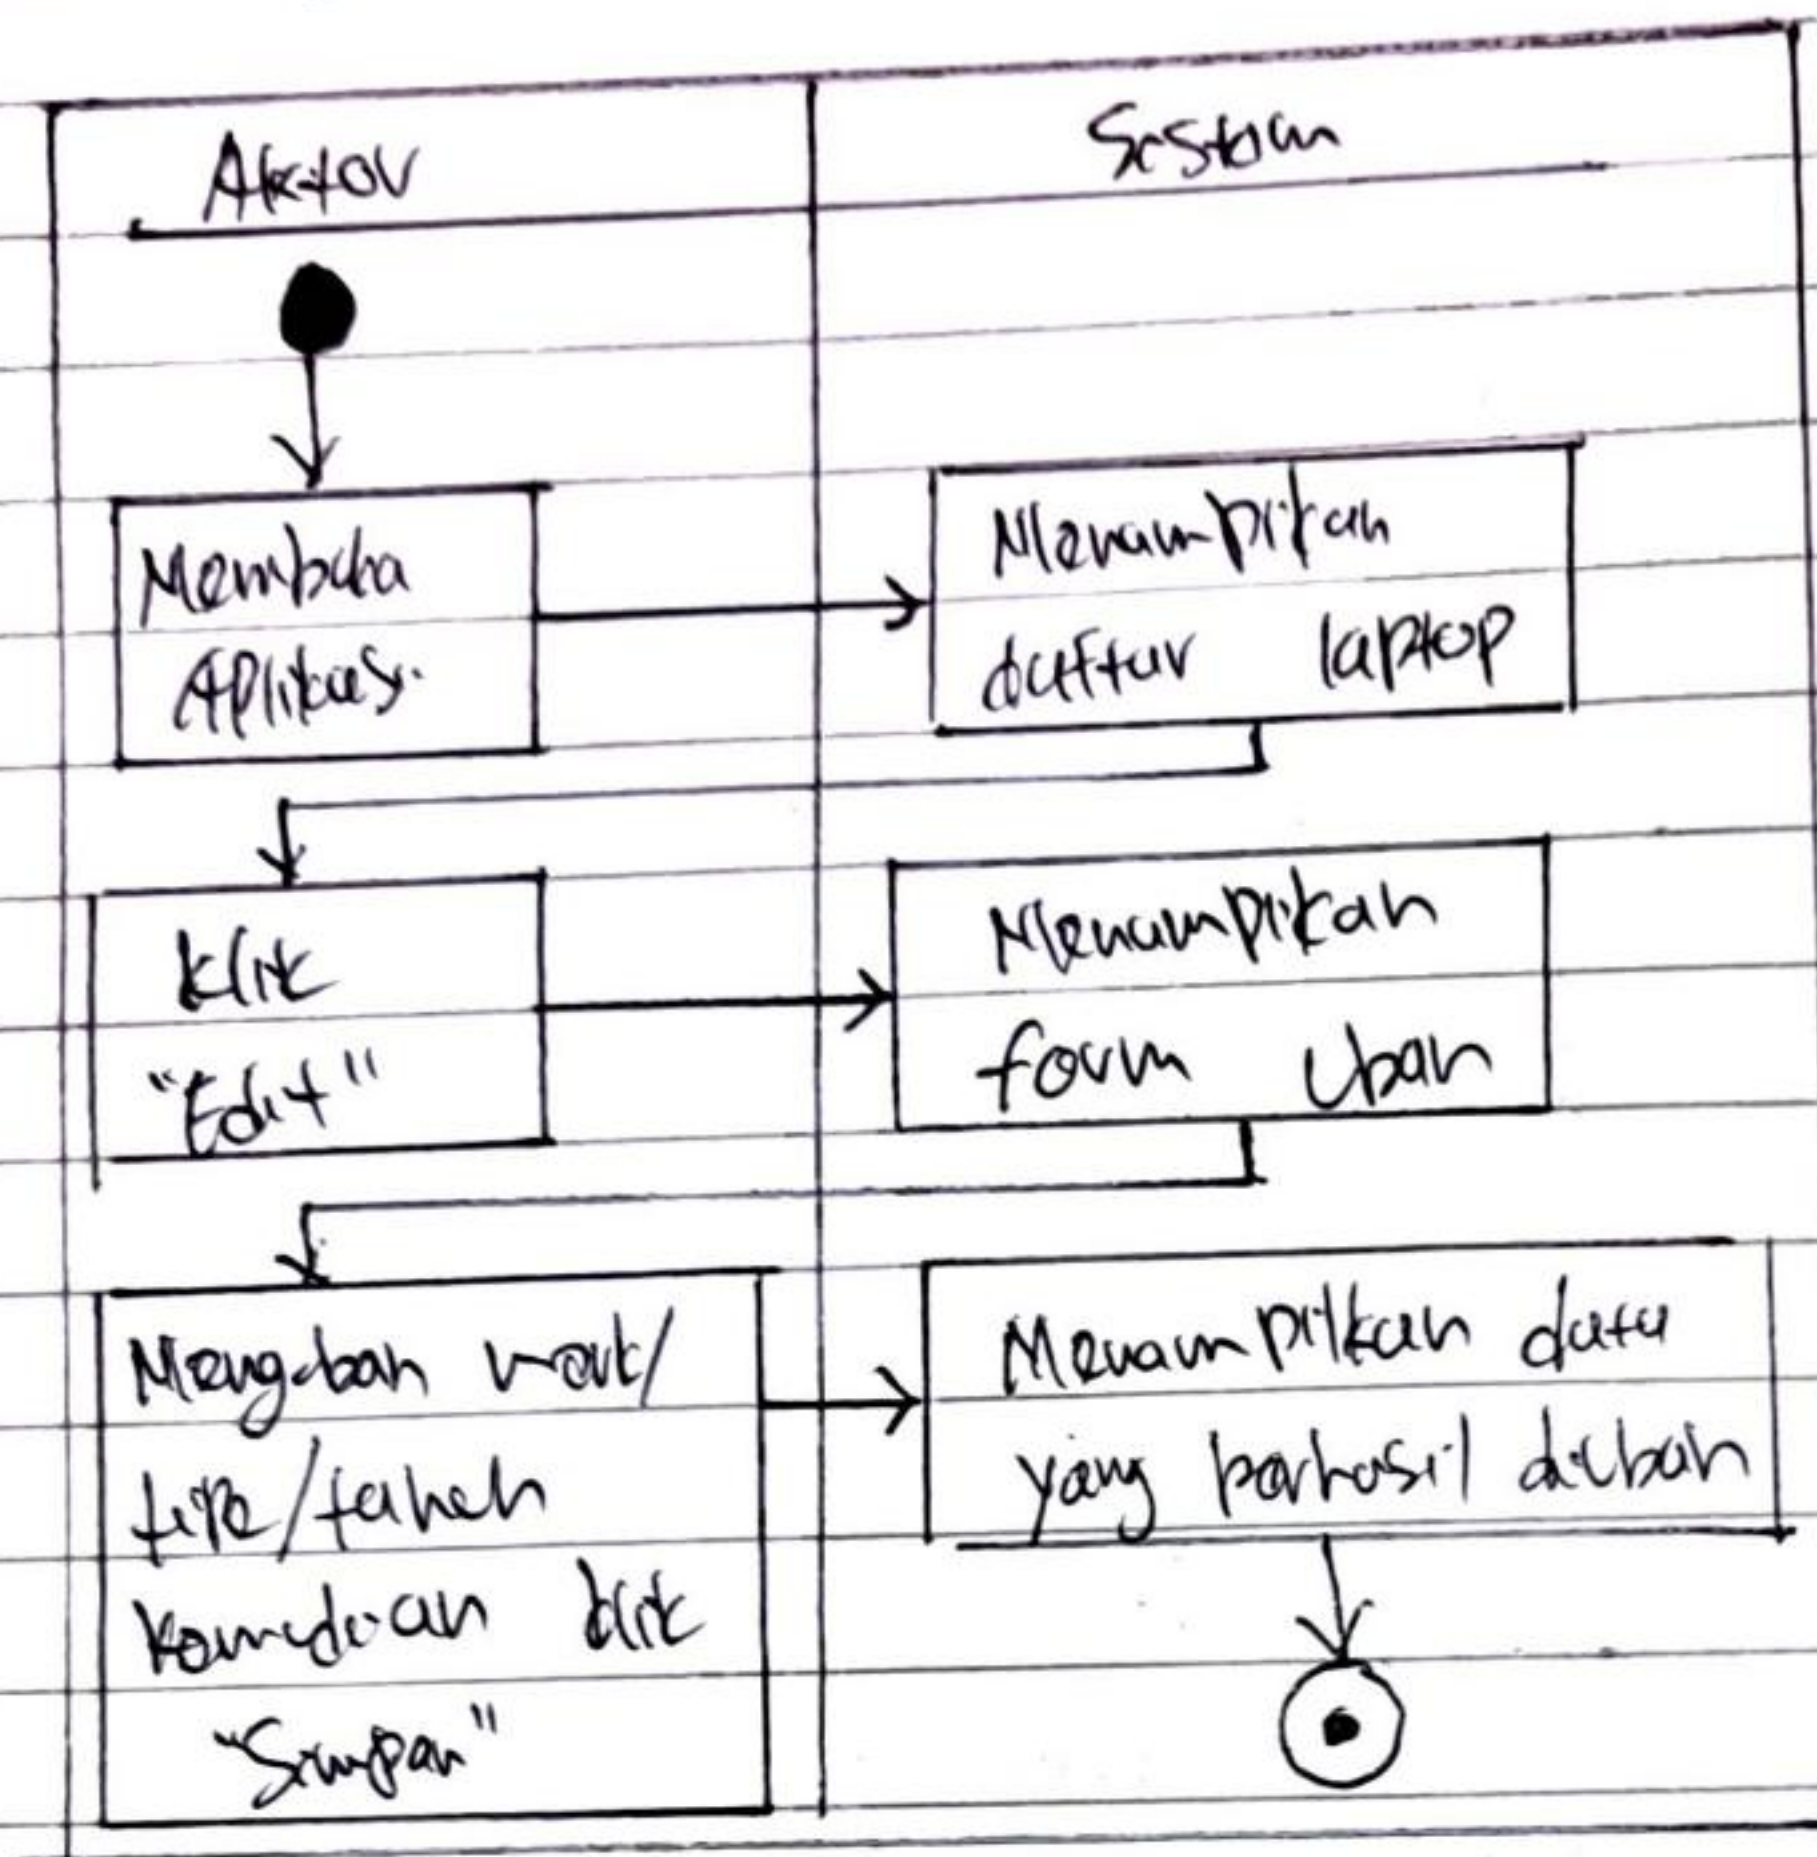 Aktor
Sistem
Membuka
Aplikasi
Menampilkan
daftar laptop
Klik
"Edit"
Menampilkan
form Ubah
Mengubah merk/
tipe/tahun
kemudian klik
"Simpan"
Menampilkan data
yang berhasil diubah